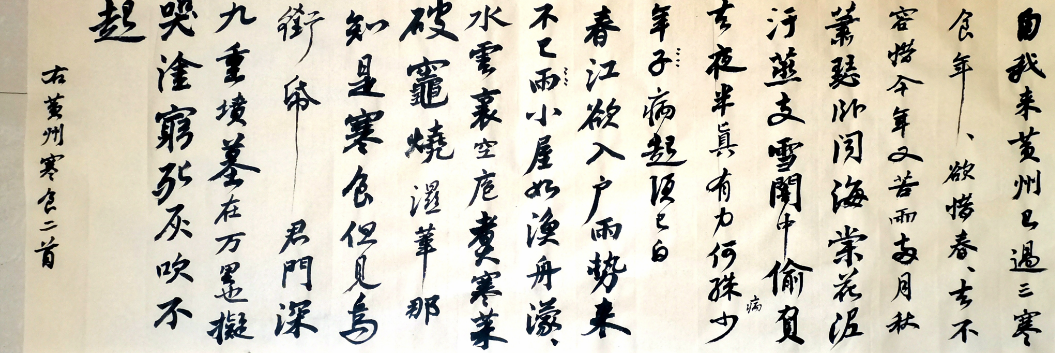 自我来黄州已過三寒
食年、欲惜春、去不
容惜今年又苦雨兩月秋
蕭瑟卧闻海棠花泥
汙燕支雪闇中偷負
去夜半真有力何殊少
病
年子病起頭已白
春江欲入户雨勢来
不已雨小屋如漁舟濛、
水雲裏空庖煮寒菜
破竈燒濕葦那
知是寒食但見烏
銜帋君門深
九重墳墓在万里也擬
哭塗窮死灰吹不
起
右黄州寒食二首